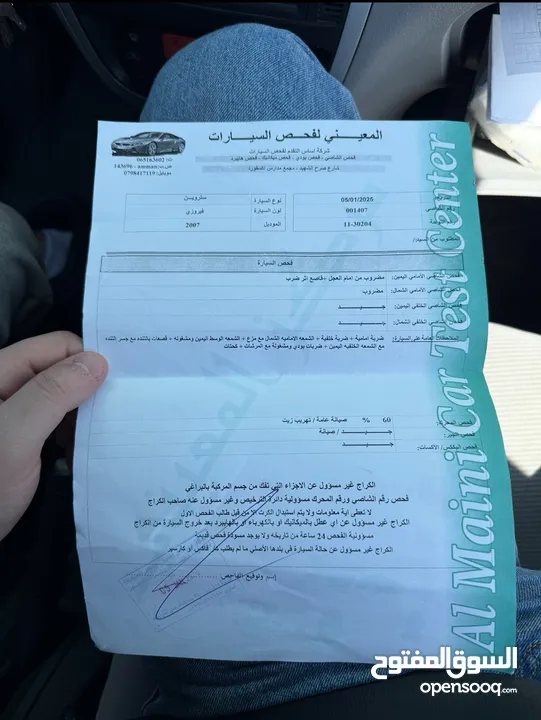 المعيني لفحص السيارات
شركة اساس التقدم لفحص السيارات
فحص الشاصي - فحص بودي - فحص ميكانيك - فحص هايبرد
ت: 065163602
143696 - amman
موبايل: 0798417119
05/01/2025 نوع السيارة ستروبسن
001407 لون السيارة فيروزي
11-30204 الموديل 2007
المطلوب من السيد:
فحص السيارة
الشاصي الأمامي اليمين: مضروب من امام العجل + قاصع اثر ضرب
الشاصي الأمامي الشمال: مضروب
الشاصي الخلفي اليمين: جيد
الشاصي الخلفي الشمال: جيد
الملاحظات العامة على السيارة: ضربة امامية + ضربة خلفية + الشمعه الاماميه الشمال مع مزع + الشمعه الوسط ايمين ومشغوله + قصعات بالتنده مع جسر التنده
مع الشمعه الخلفيه اليمين + ضربات بودي ومشغولة مع المرشات + كحتات
فحص المحرك: 60 % صيانة عامة / تهريب زيت
فحص الجير: جيد / صيانة
فحص البكس/الاكسات: جيد
الكراج غير مسؤول عن الاجزاء التي تفك من جسم المركبة بالبراغي
فحص رقم الشاصي ورقم المحرك مسؤولية دائرة الترخيص وغير مسؤول عنه صاحب الكراج
لا تعطى أية معلومات ولا يتم استبدال الكرت الا من قبل طالب الفحص الاول
الكراج غير مسؤول عن أي عطل بالميكانيك أو بالكهرباء او بالهايبرد بعد خروج السيارة من الكراج
مسؤولية الفحص 24 ساعة من تاريخه ولا يوجد مسودة فحص قديمة
الكراج غير مسؤول عن حالة السيارة في بلدها الأصلي ما لم يطلب كار فاكس أو كارسير
إسم وتوقيع الفاحص
Al Maini Car Test Center
السوق المفتوح
opensooq.com